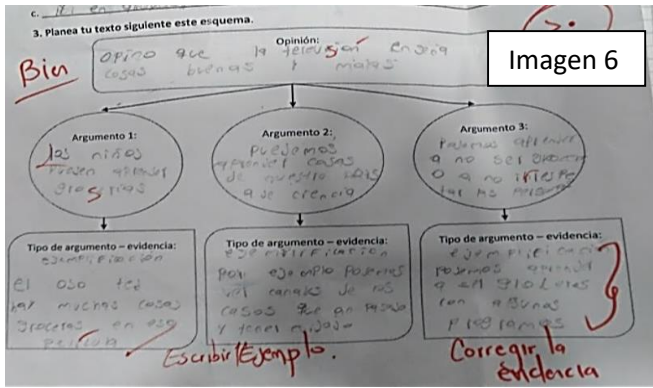 c.
3. Planea tu texto siguiente este esquema.
Imagen 6
Bien
Opinión:
opino que la television enseña
cosas buenas y malas
Argumento 1:
los niños
pueden aprender
groserias
Argumento 2:
puedemos
aprender cosas
de nuestro
Argumento 3:
podemos aprender
a no ser
o a no irrespe
tar
Tipo de argumento – evidencia:
ejemplificación
el oso ted
hay muchas cosas
groceras en esa
pelicula
Tipo de argumento – evidencia:
ejemplificacion
por ejemplo podemos
ver canales de
cosas que an pasado
y tener
Tipo de argumento – evidencia:
ejemplificacion
podemos aprender
a
con algunos
programas
Escribir/Ejemplo.
Corregir la
evidencia